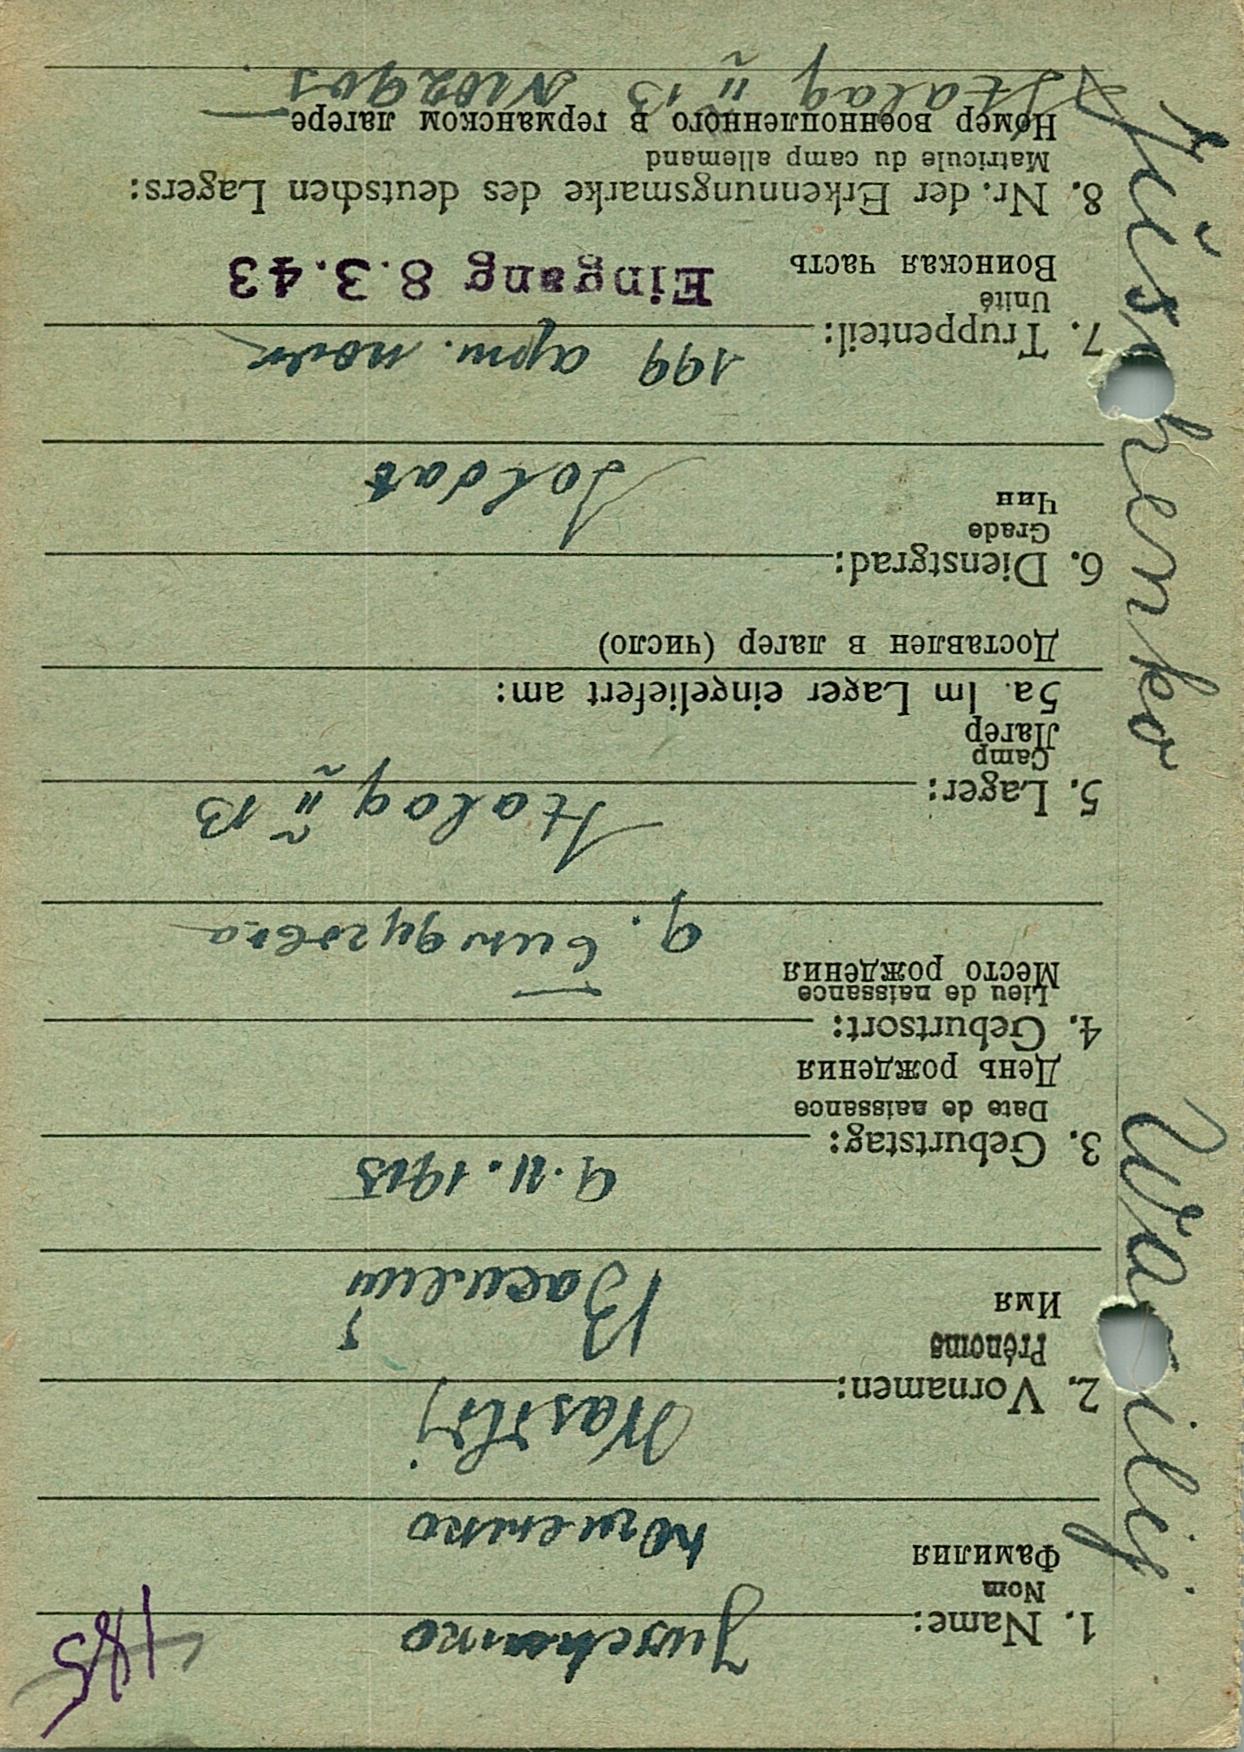 185
Juschenko
1. Name:
Nom
Фамилия
Ющенко
Wasilij
2. Vornamen:
Prénoms
Имя
Василий
9.11.1915
3. Geburtstag:
Date de naissance
День рождения
4. Geburtsort:
Lieu de naissance
Место рождения
д.
Stalag II B
5. Lager:
Camp
Лагер
5a. Im Lager eingeliefert am:
Доставлен в лагер (число)
6. Dienstgrad:
Grade
Чин
Soldat
199 арт. полк
7. Truppenteil:
Unité
Воинская часть
Eingang 8.3.43
8. Nr. der Erkennungsmarke des deutschen Lagers:
Matricule du camp allemand
Номер военнопленного в германском лагере
Stalag II B №102903
Juschenko Wasilij